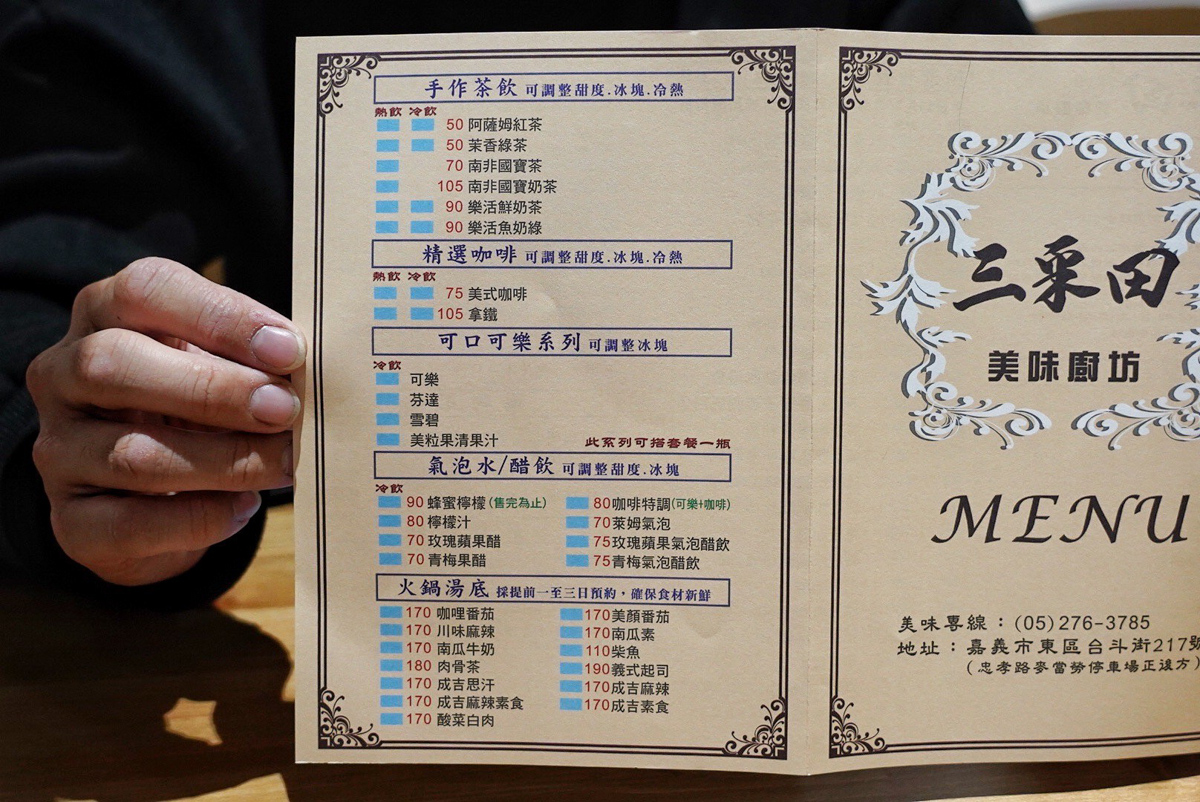 手作茶飲 可調整甜度.冰塊.冷熱
熱飲 冷飲
50 阿薩姆紅茶
50 茉香綠茶
70 南非國寶茶
105 南非國寶奶茶
90 樂活鮮奶茶
90 樂活魚奶綠
精選咖啡 可調整甜度.冰塊.冷熱
熱飲 冷飲
75 美式咖啡
105 拿鐵
可口可樂系列 可調整冰塊
冷飲
可樂
芬達
雪碧
美粒果清果汁 此系列可搭套餐一瓶
氣泡水/醋飲 可調整甜度.冰塊
冷飲
90 蜂蜜檸檬(售完為止) 80咖啡特調(可樂+咖啡)
80 檸檬汁 70萊姆氣泡
70 玫瑰蘋果醋 75玫瑰蘋果氣泡醋飲
70 青梅果醋 75青梅氣泡醋飲
火鍋湯底 採提前一至三日預約，確保食材新鮮
170 咖哩番茄 170美顏番茄
170 川味麻辣 170南瓜素
170 南瓜牛奶 110柴魚
180 肉骨茶 190義式起司
170 成吉思汗 170成吉麻辣
170 成吉麻辣素食 170成吉素食
170 酸菜白肉
三采田
美味廚坊
MENU
美味專線：(05)276-3785
地址：嘉義市東區台斗街217號
(忠孝路麥當勞停車場正後方)